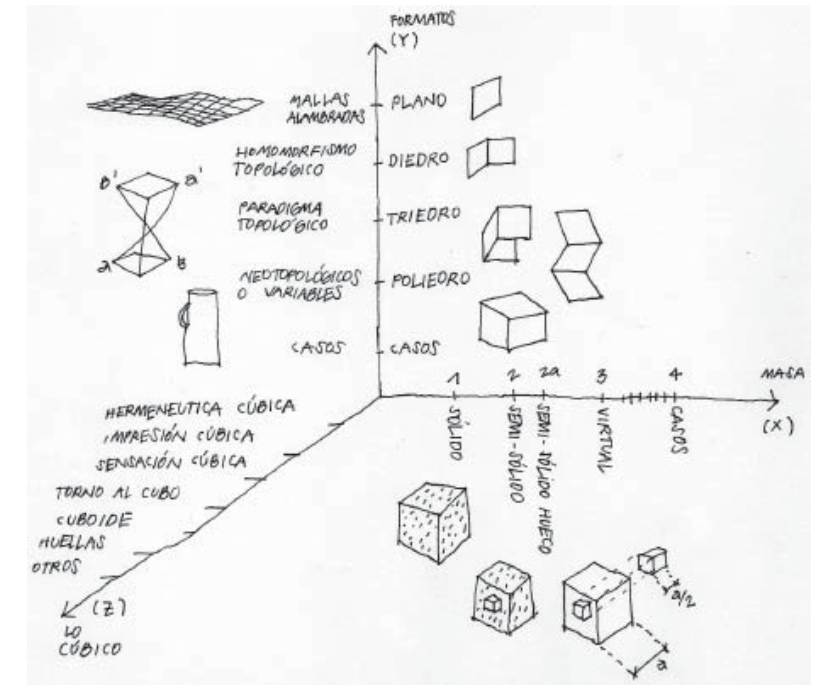 FORMATOS
(Y)
MALLAS
ALAMBRADAS
PLANO
HOMOMORFISMO
TOPOLÓGICO
DIEDRO
B'
a'
PARADIGMA
TOPOLÓGICO
TRIEDRO
a
B
NEOTOPOLÓGICOS
O VARIABLES
POLIEDRO
CASOS
CASOS
1
2
2a
3
4
MASA
(X)
SÓLIDO
SEMI-SÓLIDO
SEMI-SÓLIDO HUECO
VIRTUAL
CASOS
HERMENEUTICA CÚBICA
IMPRESIÓN CÚBICA
SENSACIÓN CÚBICA
TORNO AL CUBO
CUBOIDE
HUELLAS
OTROS
(Z)
LO
CÚBICO
a/2
a